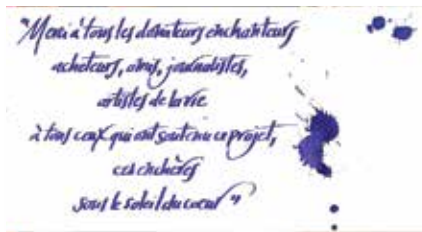 "Merci à tous les donateurs enchanteurs
acheteurs, amis, journalistes,
artistes de la vie
à tous ceux qui ont soutenu ce projet,
ces enchères
sous le soleil du coeur"